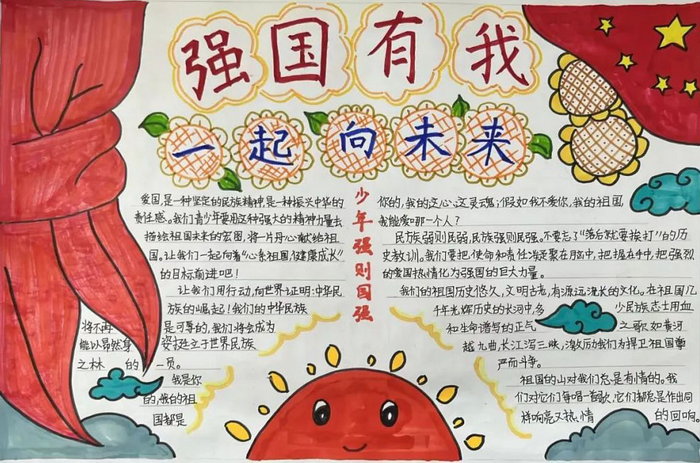 强国有我
一起向未来
爱国,是一种坚定的民族精神,是一种振兴中华的
责任感。我们青少年要用这种强大的精神力量去
描绘祖国未来的宏图,将一片丹心献给祖
国。让我们一起向着“心系祖国,健康成长”
的目标前进吧!
让我们用行动,向世界证明:中华民
族的崛起!我们的中华民族
是可尊的,我们将会成为
将不再
能以昂然身姿挺立于世界民族
之林的一员。
我是你
的,我的祖
国都是
少年强则国强
你的,我的这心、这灵魂;假如我不爱你,我的祖国,
我能爱哪一个人?
民族弱则民弱,民族强则民强。不要忘了“落后就要挨打”的历
史教训。我们要把使命和责任凝聚在脑中,把握在手中,把强烈
的爱国热情化为强国的巨大力量。
我们的祖国历史悠久,文明古老,有源远流长的文化。在祖国几
千年光辉历史的长河中,多少民族志士用血
和生命谱写的正气之歌如黄河
越九曲,长江泻三峡,激励我们为捍卫祖国尊
严而斗争。
祖国的山对我们总是有情的。我
们对它们每唱一首歌,它们都总是作出同
样响亮又热情的回响。